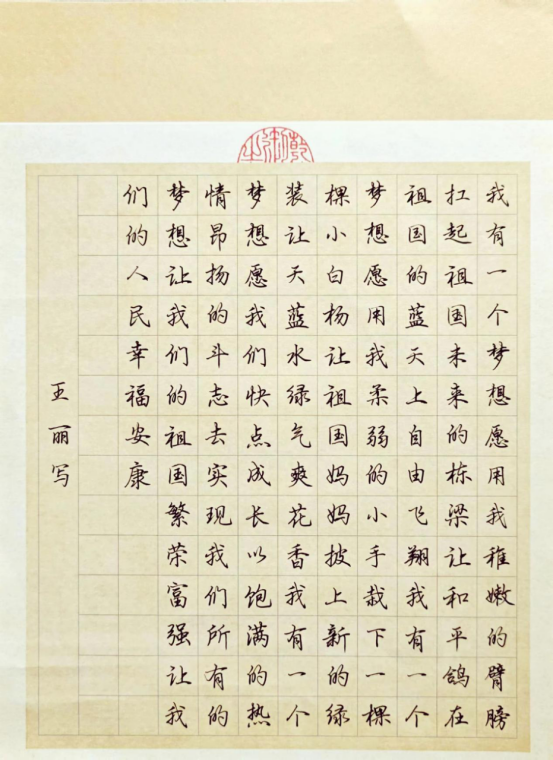 我有一个梦想愿用我稚嫩的臂膀
扛起祖国未来的栋梁让和平鸽在
祖国的蓝天上自由飞翔我有一个
梦想愿用我柔弱的小手栽下一棵
棵小白杨让祖国妈妈披上新的绿
装让天蓝水绿气爽花香我有一个
梦想愿我们快点成长以饱满的热
情昂扬的斗志去实现我们所有的
梦想让我们的祖国繁荣富强让我
们的人民幸福安康
王丽写